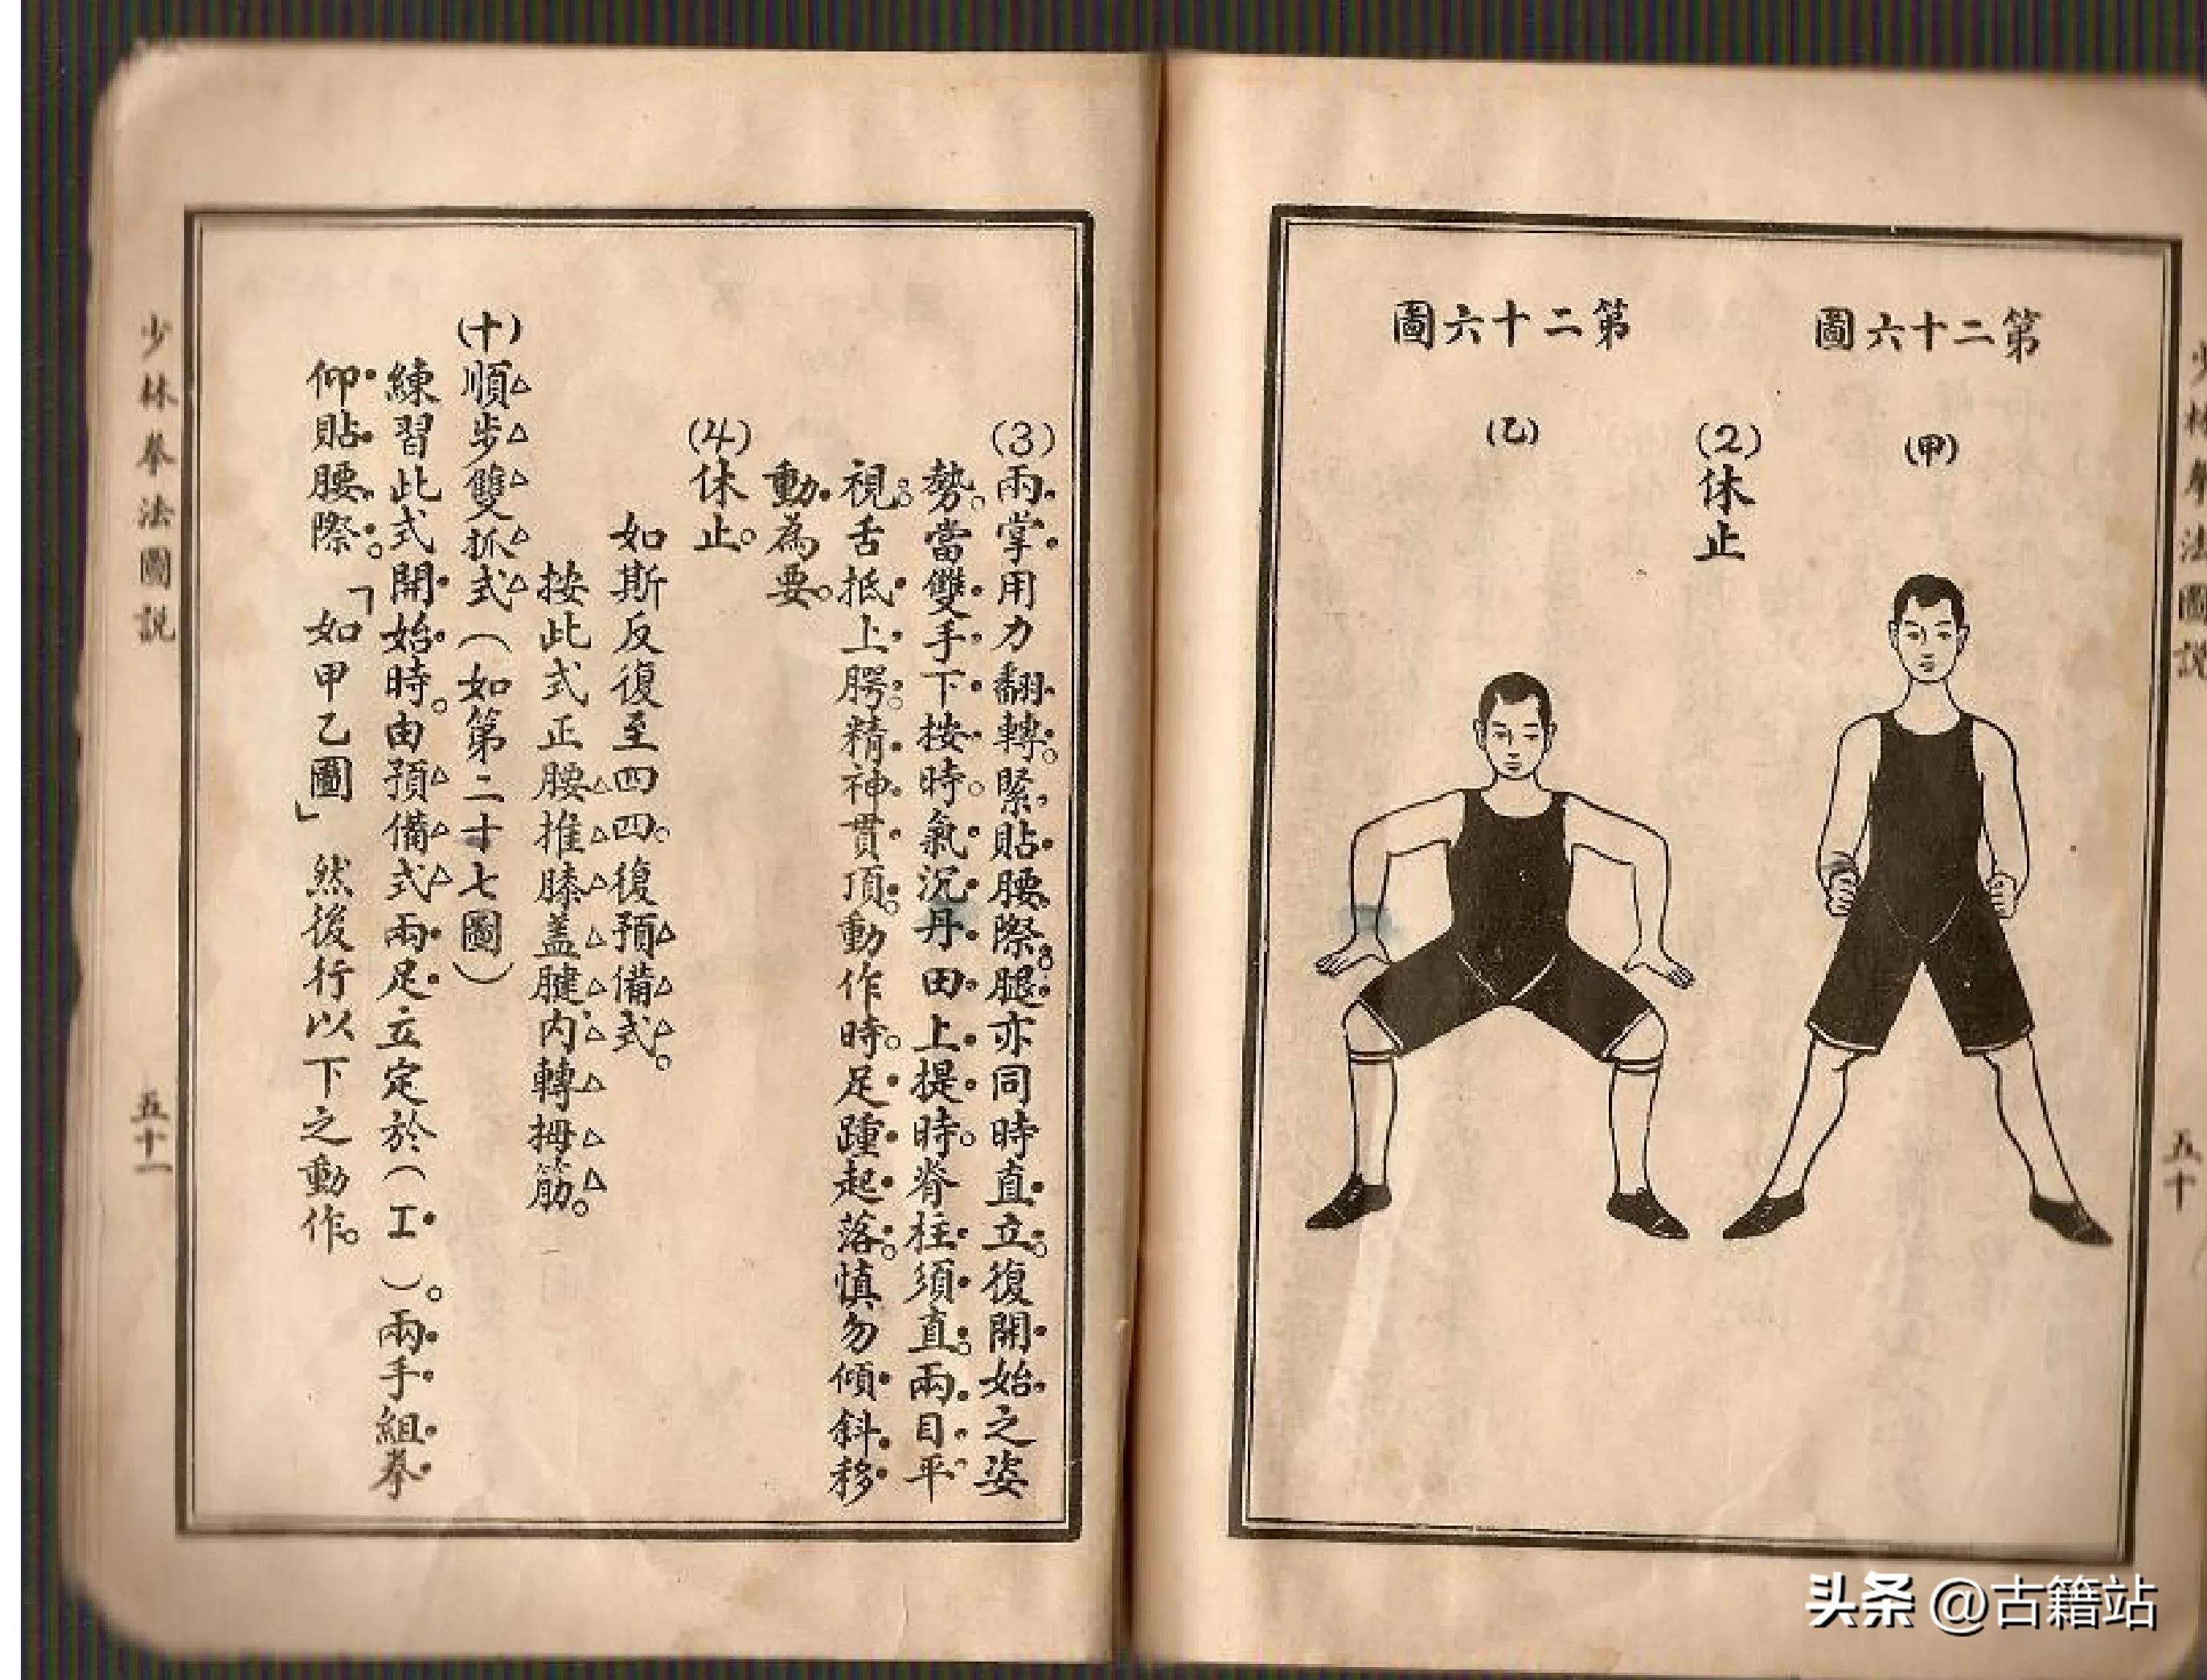 少林拳法圖説
五十
第二十六圖
(甲)
(2)休止
第二十六圖
(乙)
(3)兩掌用力翻轉。緊貼腰際。腿亦同時直立。復開始之姿
勢。當雙手下按時。氣沉丹田。上提時。脊柱須直。兩目平
視。舌抵上腭。精神貫頂。動作時。足踵起落。慎勿傾斜移
動為要。
(4)休止。
如斯反復至四四。復預備式。
按此式正腰推膝蓋腱内轉拇筋。
(十)順步雙抓式(如第二十七圖)
練習此式開始時。由預備式兩足立定於(工)。兩手組拳
仰貼腰際。「如甲乙圖」然後行以下之動作。
少林拳法圖説
五十一
头条 @古籍站